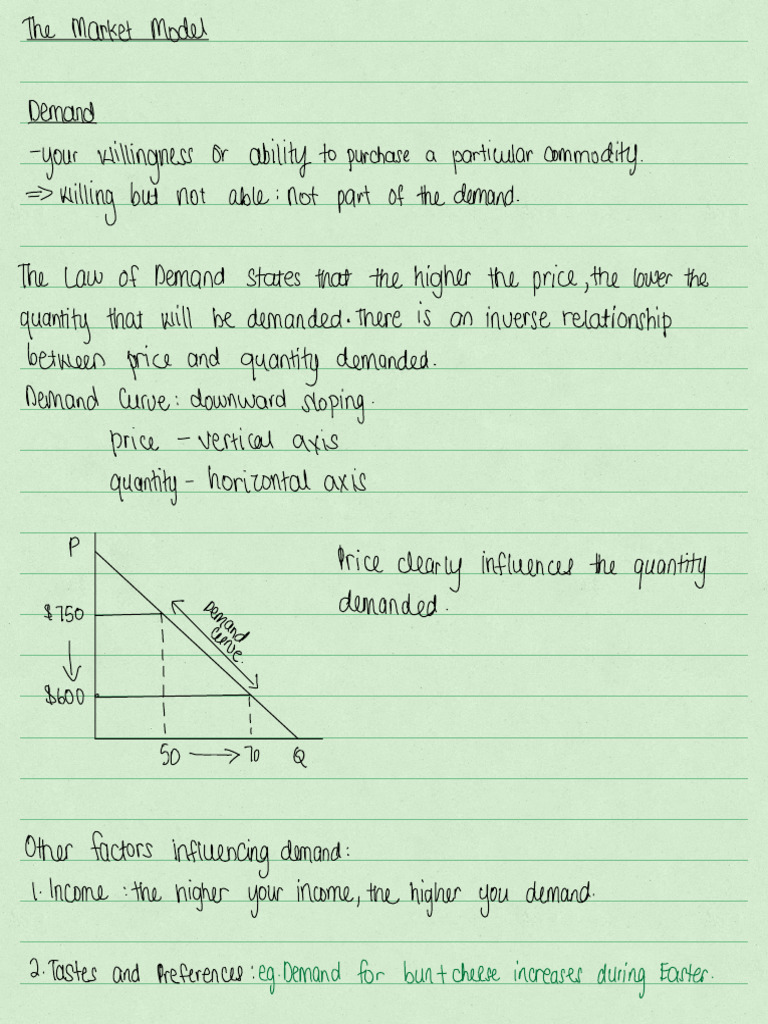 The Market Model
Demand
-your willingness or ability to purchase a particular commodity.
=> willing but not able : not part of the demand.
The Law of Demand states that the higher the price, the lower the
quantity that will be demanded. There is an inverse relationship
between price and quantity demanded.
Demand Curve: downward sloping.
price - vertical axis
quantity - horizontal axis
P
Price clearly influences the quantity
demanded.
$750
Demand
Curve.
↓
$600
50 → 70 Q
Other factors influencing demand:
1. Income : the higher your income, the higher you demand.
2. Tastes and Preferences: eg. Demand for bun + cheese increases during Easter.